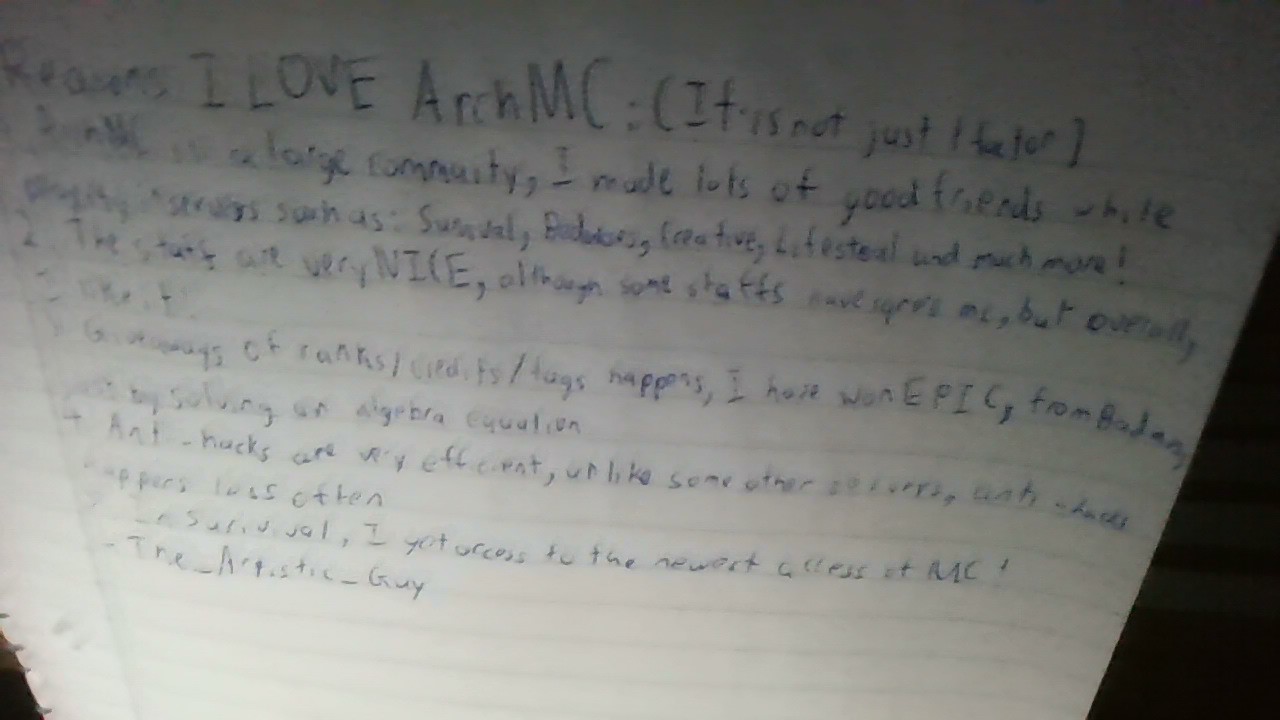 Reasons I LOVE ArchMC: (It is not just 1 fator]
ArchMC is a large commuity, I made lots of good friends while
servers such as: Survival, Bedwars, Creative, Lifesteal und much more!
2. The staffs are very NICE, although some staffs have me, but overall,
I like it!
3. Giveaways of ranks/credits/tags happens, I have won EPIC, from
by solving an algebra equation
4 Anti-hacks are very efficient, unlike some other servers, anti-hacks
happens less often
In Survival, I get access to the newest access of MC!
-The_Artistic_Guy